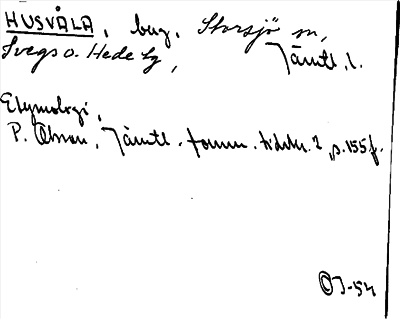 HUSVÅLA, bug. Storsjö sn,
Svegs o. Hede tg, Jämtl. l.
Etymologi,
P. Olsson, Jämtl. fornm. tidskr. 2, s. 155 f.
OJ-54